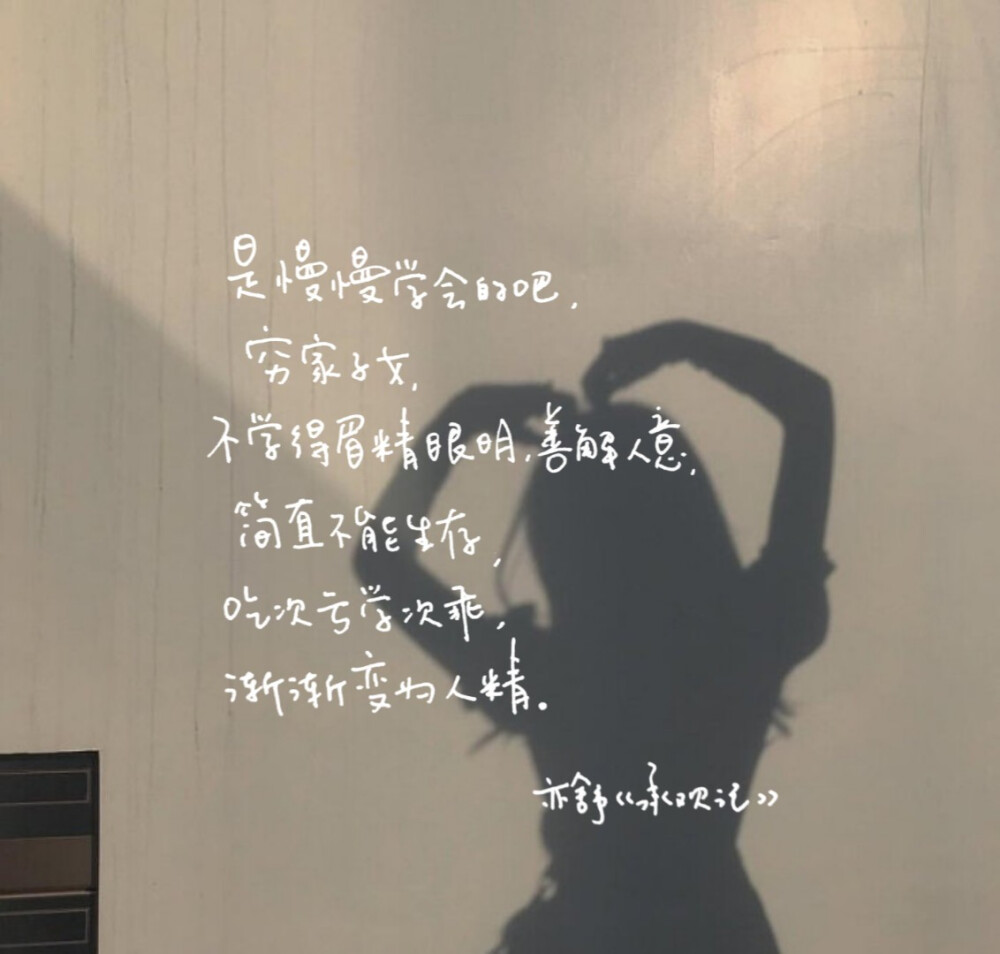 是慢慢学会的吧,
穷家子女,
不学得眉精眼明,善解人意,
简直不能生存,
吃次亏学次乖,
渐渐变为人精。
亦舒《承欢记》